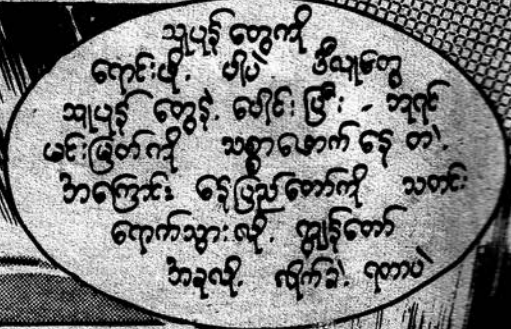 သူပုန် တွေကို
ရောင်းဖို့. ပါပဲ ဒီလူတွေ
သူပုန် တွေနဲ့. ပေါင်း ပြီး - ဘုရင်
မင်းမြတ်ကို သစ္စာဖောက် နေ တဲ့.
အကြောင်း နေပြည်တော်ကို သတင်း
ရောက်သွား လို့. ကျွန်တော်
အခုလို. လိုက်ခဲ့. ရတာပဲ